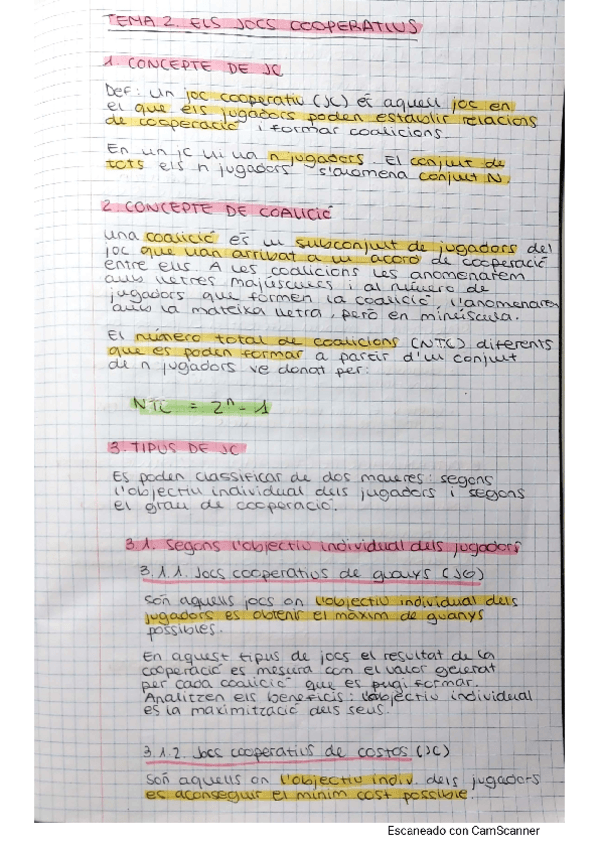 TEMA 2. ELS JOCS COOPERATIUS
1. CONCEPTE DE JC
Def: Un joc cooperatiu (JC) és aquell joc en
el que els jugadors poden establir relacions
de cooperació i formar coalicions.
En un JC hi ha n jugadors. El conjunt de
tots els n jugadors s'anomena conjunt N.
2. CONCEPTE DE COALICIÓ
Una coalició és un subconjunt de jugadors del
joc que han arribat a un acord de cooperació
entre ells. A les coalicions les anomenarem
amb lletres majúscules i al número de
jugadors que formen la coalició, l'anomenarem
amb la mateixa lletra, però en minúscula.
El número total de coalicions (NTC) diferents
que es poden formar a partir d'un conjunt
de n jugadors ve donat per:
NTC = 2ⁿ - 1
3. TIPUS DE JC
Es poden classificar de dos maneres: segons
l'objectiu individual dels jugadors i segons
el grau de cooperació.
3.1. Segons l'objectiu individual dels jugadors
3.1.1. Jocs cooperatius de guanys (JG)
Són aquells jocs on l'objectiu individual dels
jugadors es obtenir el màxim de guanys
possibles.
En aquest tipus de jocs el resultat de la
cooperació es mesura com el valor generat
per cada coalició que es pugi formar.
Analitzen els beneficis: l'objectiu individual
és la maximització dels seus.
3.1.2. Jocs cooperatius de costos (JC)
Són aquells on l'objectiu indiv. dels jugadors
es aconseguir el mínim cost possible.
Escaneado con CamScanner